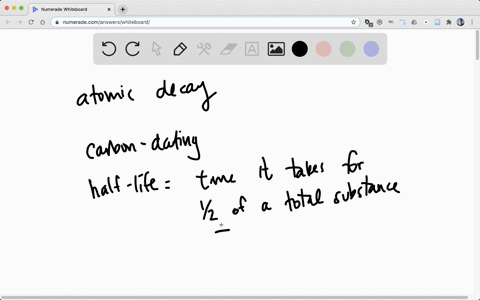 Numerade Whiteboard
numerade.com/answers/whiteboard/
atomic decay
carbon-dating
half-life = time it takes for
1/2 of a total substance